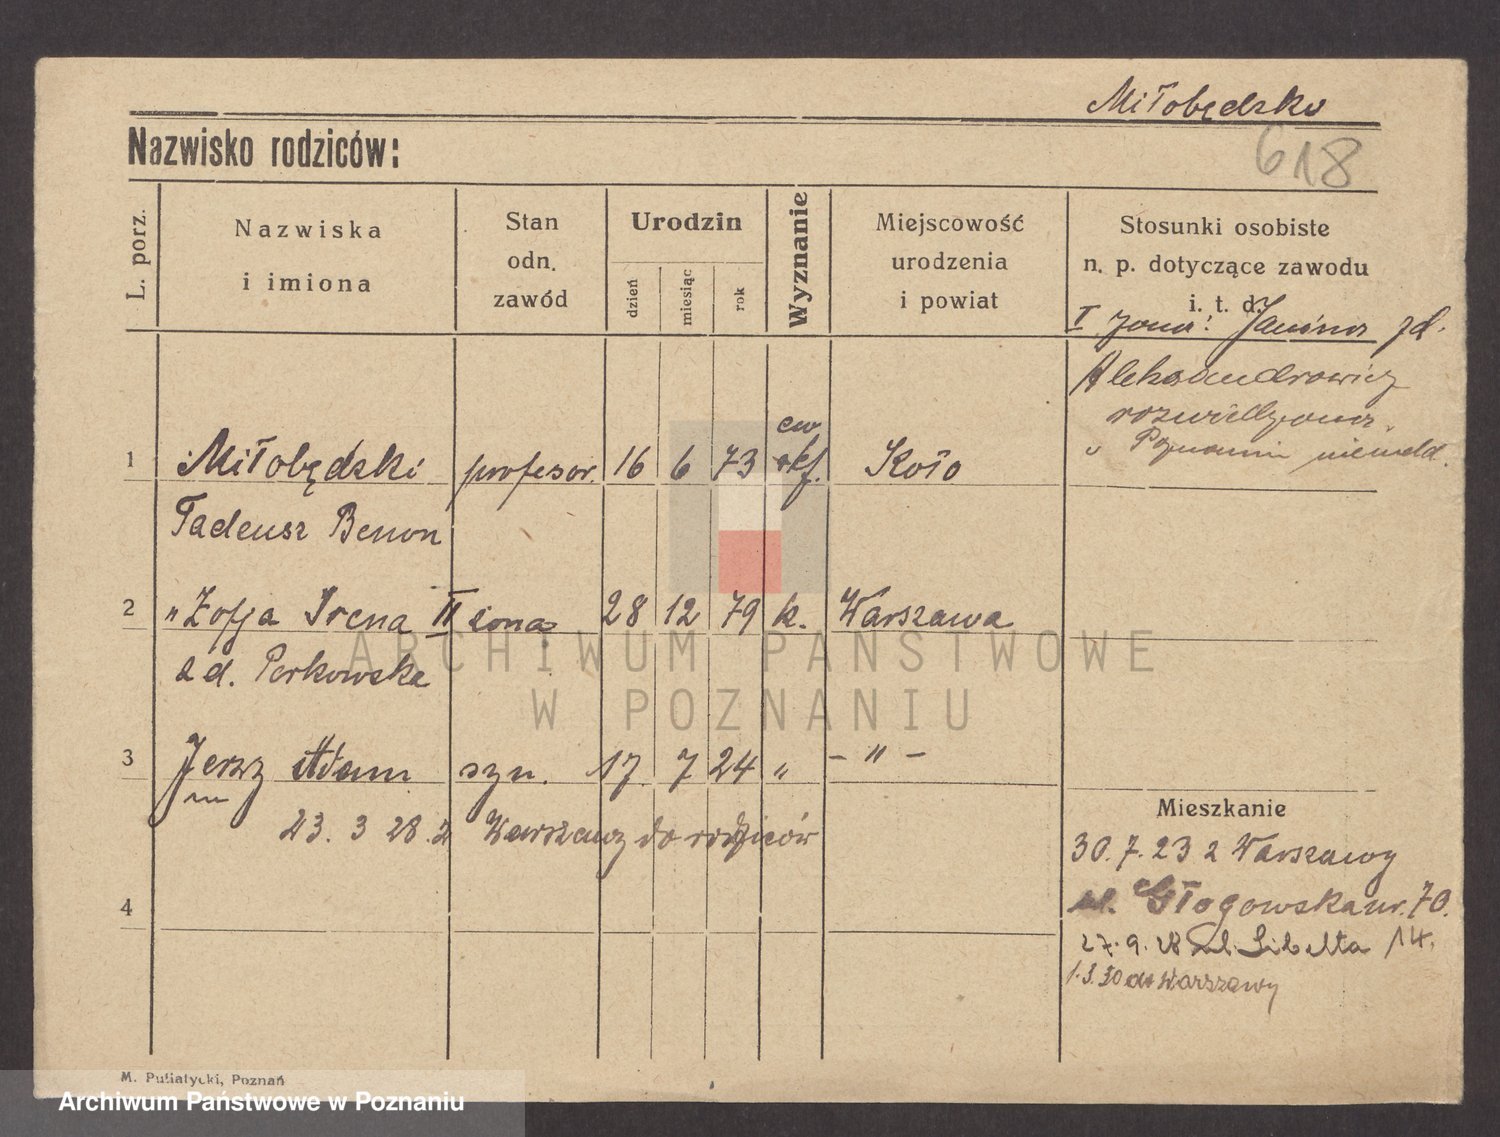 Miłobędzki
Nazwisko rodziców:
618
L. porz.
Nazwiska
i imiona
Stan
odn.
zawód
Urodzin
dzień
miesiąc
rok
Wyznanie
Miejscowość
urodzenia
i powiat
Stosunki osobiste
n. p. dotyczące zawodu
i. t. d.
I żona: Janina zd.
Aleksandrowicz
rozwiedziona.
w Poznaniu niemeld.
ew.
1 Miłobędzki profesor. 16 6 73 rkf. Koło
Tadeusz Benon
2 " Zofja Irena II żona 28 12 79 k. Warszawa
z d. Perkowska
3 Jerzy Adam syn. 17 7 24 " - " -
23. 3 28. z Warszawy do rodziców
4
Mieszkanie
30. 7. 23 z Warszawy
ul. Głogowska nr. 70.
27. 9. 28 ul. Libelta 14.
1. 3. 30 do Warszawy
M. Putiatycki, Poznań
ARCHIWUM PAŃSTWOWE
W POZNANIU
Archiwum Państwowe w Poznaniu